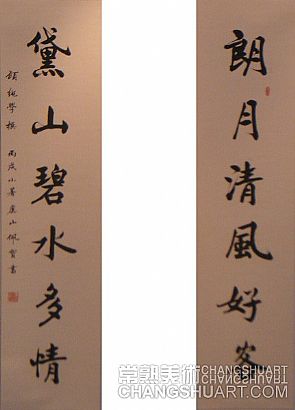 朗月清風好客
黛山碧水多情
學撰 丙戌小暑虞山佩書
常熟美術 CHANGSHUART
CHANGSHUART.COM